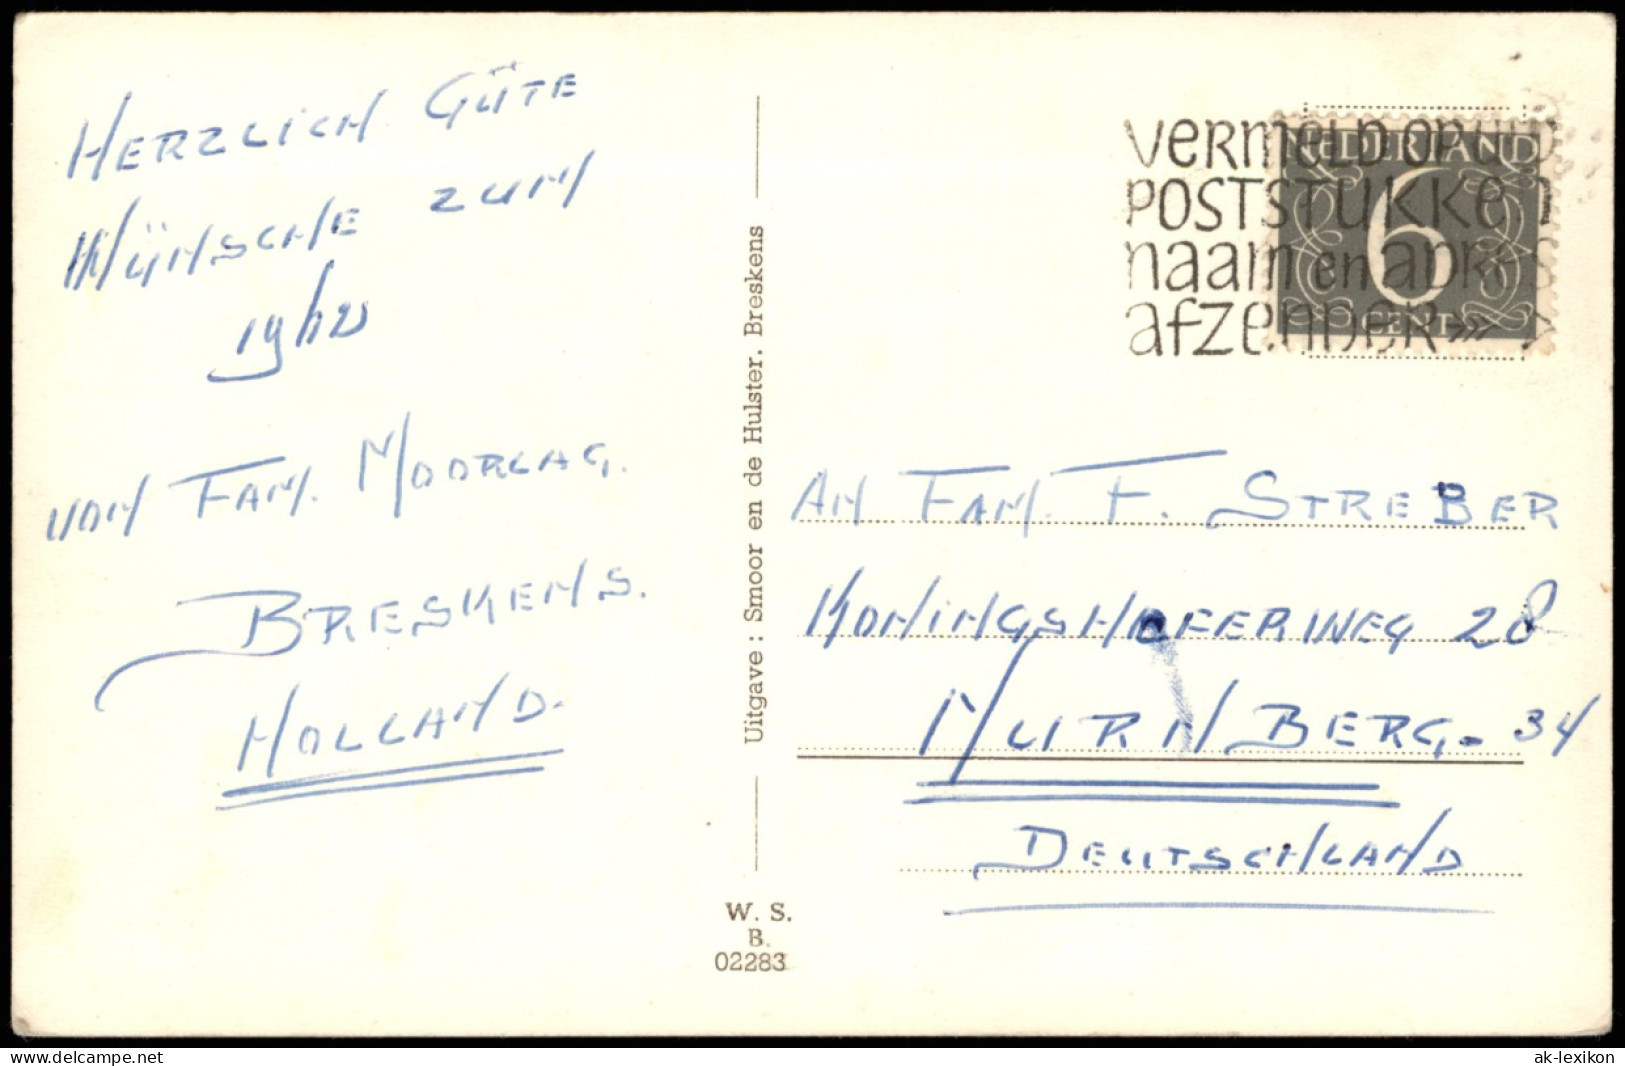 HERZLICH GÜTE
WÜNSCHE ZUM
von FAM. MOORLAG.
BRESKENS.
HOLLAND.
Uitgave : Smoor en de Hulster. Breskens
W. S.
B.
02283
VERMELD OP UW
POSTSTUKKEN
naam en ADRES
afzender
NEDERLAND
6
CENT
AN FAM. F. STREBER
KONINGSHOFERWEG 28
NURNBERG. 34
DEUTSCHLAND
www.delcampe.net
ak-lexikon